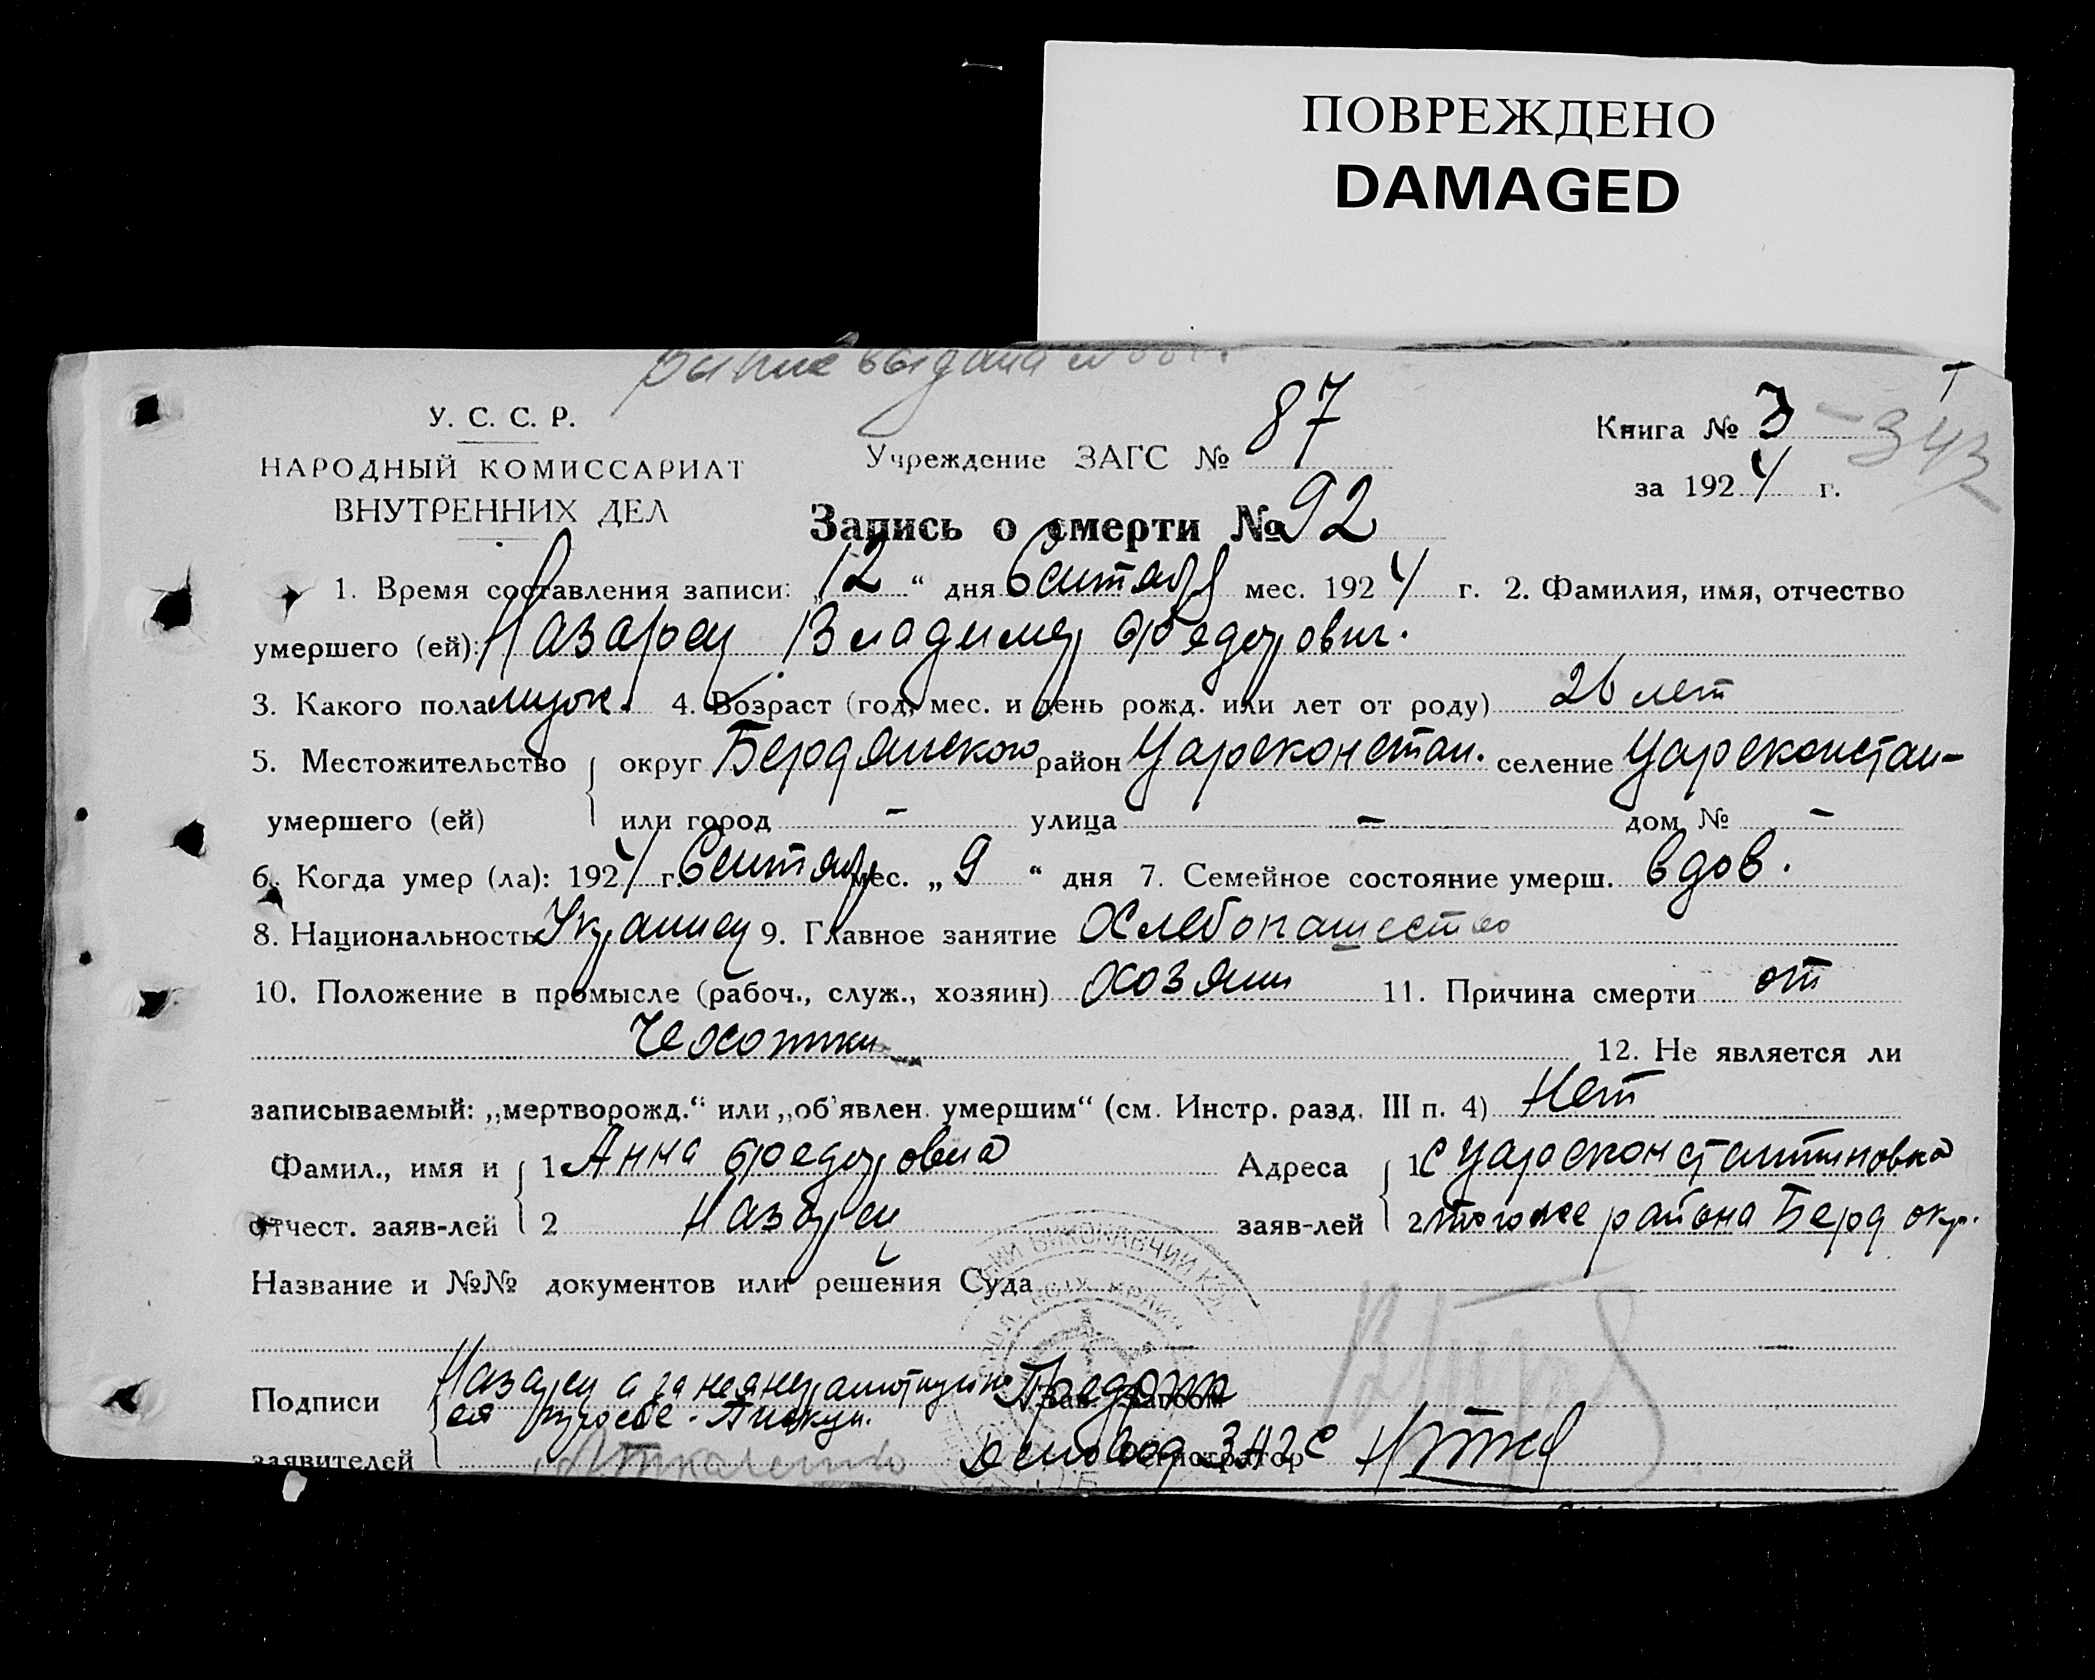 ПОВРЕЖДЕНО
DAMAGED
выдана
У. С. С. Р.
НАРОДНЫЙ КОМИССАРИАТ
ВНУТРЕННИХ ДЕЛ
Учреждение ЗАГС № 87
Книга № 3 - 343
за 1924 г.
Запись о смерти № 92
1. Время составления записи: „12“ дня Сентябр мес. 1924 г. 2. Фамилия, имя, отчество
умершего (ей): Назарец Владимер Федорович.
3. Какого пола мужск. 4. Возраст (год, мес. и день рожд. или лет от роду) 26 лет
5. Местожительство округ Бердянского район Цареконстан. селение Цареконстан-
умершего (ей) или город - улица - дом № -
6. Когда умер (ла): 1924 г. Сентябр мес. „9“ дня 7. Семейное состояние умерш. вдов.
8. Национальность Украинец 9. Главное занятие Хлебопашество
10. Положение в промысле (рабоч., служ., хозяин) хозяин 11. Причина смерти от
Чехотки 12. Не является ли
записываемый: „мертворожд.“ или „об'явлен. умершим“ (см. Инстр. разд. III п. 4) Нет
Фамил., имя и 1 Анна Федоровна Адреса 1 с Цареконстантиновка
отчест. заяв-лей 2 Назарец заяв-лей 2 того же района Берд окр.
Название и №№ документов или решения Суда
Подписи Назарец а за неграмотную
ея просьбе
заявителей Деловод ЗАГС